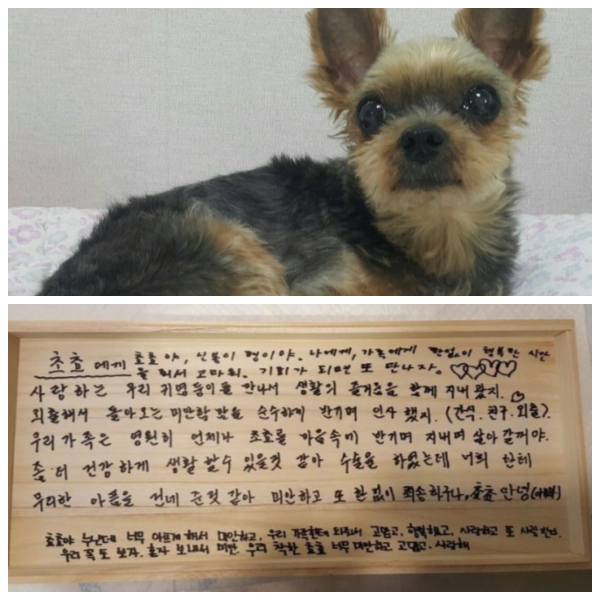 초쵸 에게 초쵸야, 인불이 형이야. 나에게, 가족에게 한없이 행복한 시간
을 줘서 고마워. 기회가 되면 또 만나자.
사랑하는 우리 귀염둥이를 만나서 생활의 즐거움을 함께 지내왔지.
외출해서 돌아오는 미만함 맞을 순수하게 반기며 인사했지. (간식. 친구. 외출).
우리가족은 영원히 언제나 초쵸를 마음속에 반기며 지내며 살아갈꺼야.
좀더 건강하게 생활할수 있을것 같아 수술을 하였는데 너희 한테
무리한 아픔을 건네준것 같아 미안하고 또 한없이 죄송하구나, 초쵸 안녕(아빠)
초쵸야 누난데 너무 아프게 해서 미안하고, 우리 가족한테 와줘서 고맙고, 행복했고, 사랑하고 또 사랑한다.
우리 꼭 또 보자. 혼자 보내서 미안. 우리 착한 초쵸 너무 미안하고 고맙고. 사랑해